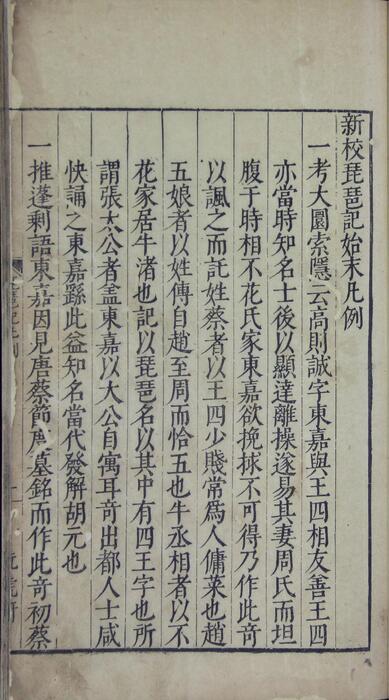 新校琵琶記始末凡例
一考大圜索隱云高則誠字東嘉與王四相友善王四
亦當時知名士後以顯達離操遂易其妻周氏而坦
腹于時相不花氏家東嘉欲挽捄不可得乃作此竒
以諷之而託姓蔡者以王四少賤常爲人傭菜也趙
五娘者以姓傳自趙至周而恰五也牛丞相者以不
花家居牛渚也記以琵琶名以其中有四王字也所
謂張太公者盖東嘉以大公自寓耳竒出都人士咸
快誦之東嘉繇此益知名當代發解胡元也
一推蓬剩語東嘉因見唐蔡節度墓銘而作此竒初蔡